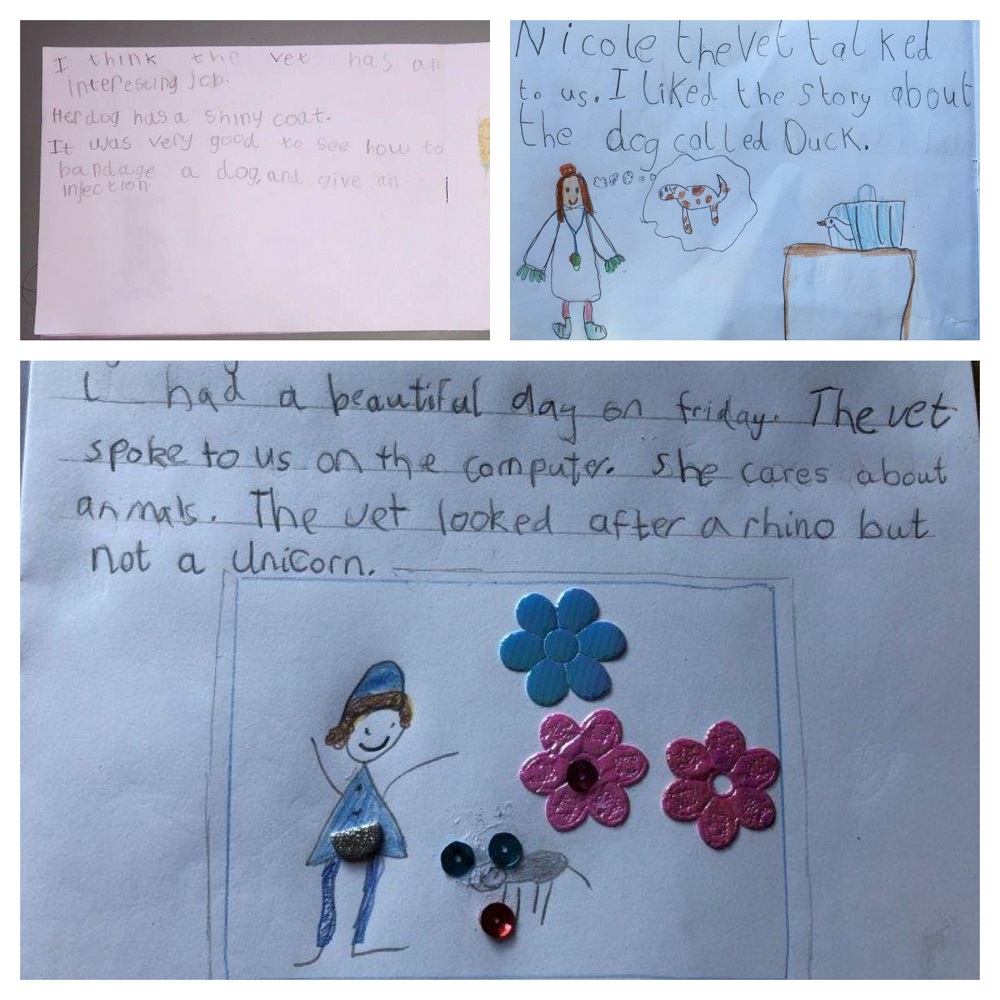 I think the vet has an
interesting job.
Her dog has a shiny coat.
It was very good to see how to
bandage a dog, and give an
injection
Nicole the Vet talked
to us. I liked the story about
the dog called Duck.
I had a beautiful day on friday. The vet
spoke to us on the computer. She cares about
anmals. The vet looked after a rhino but
not a Unicorn.